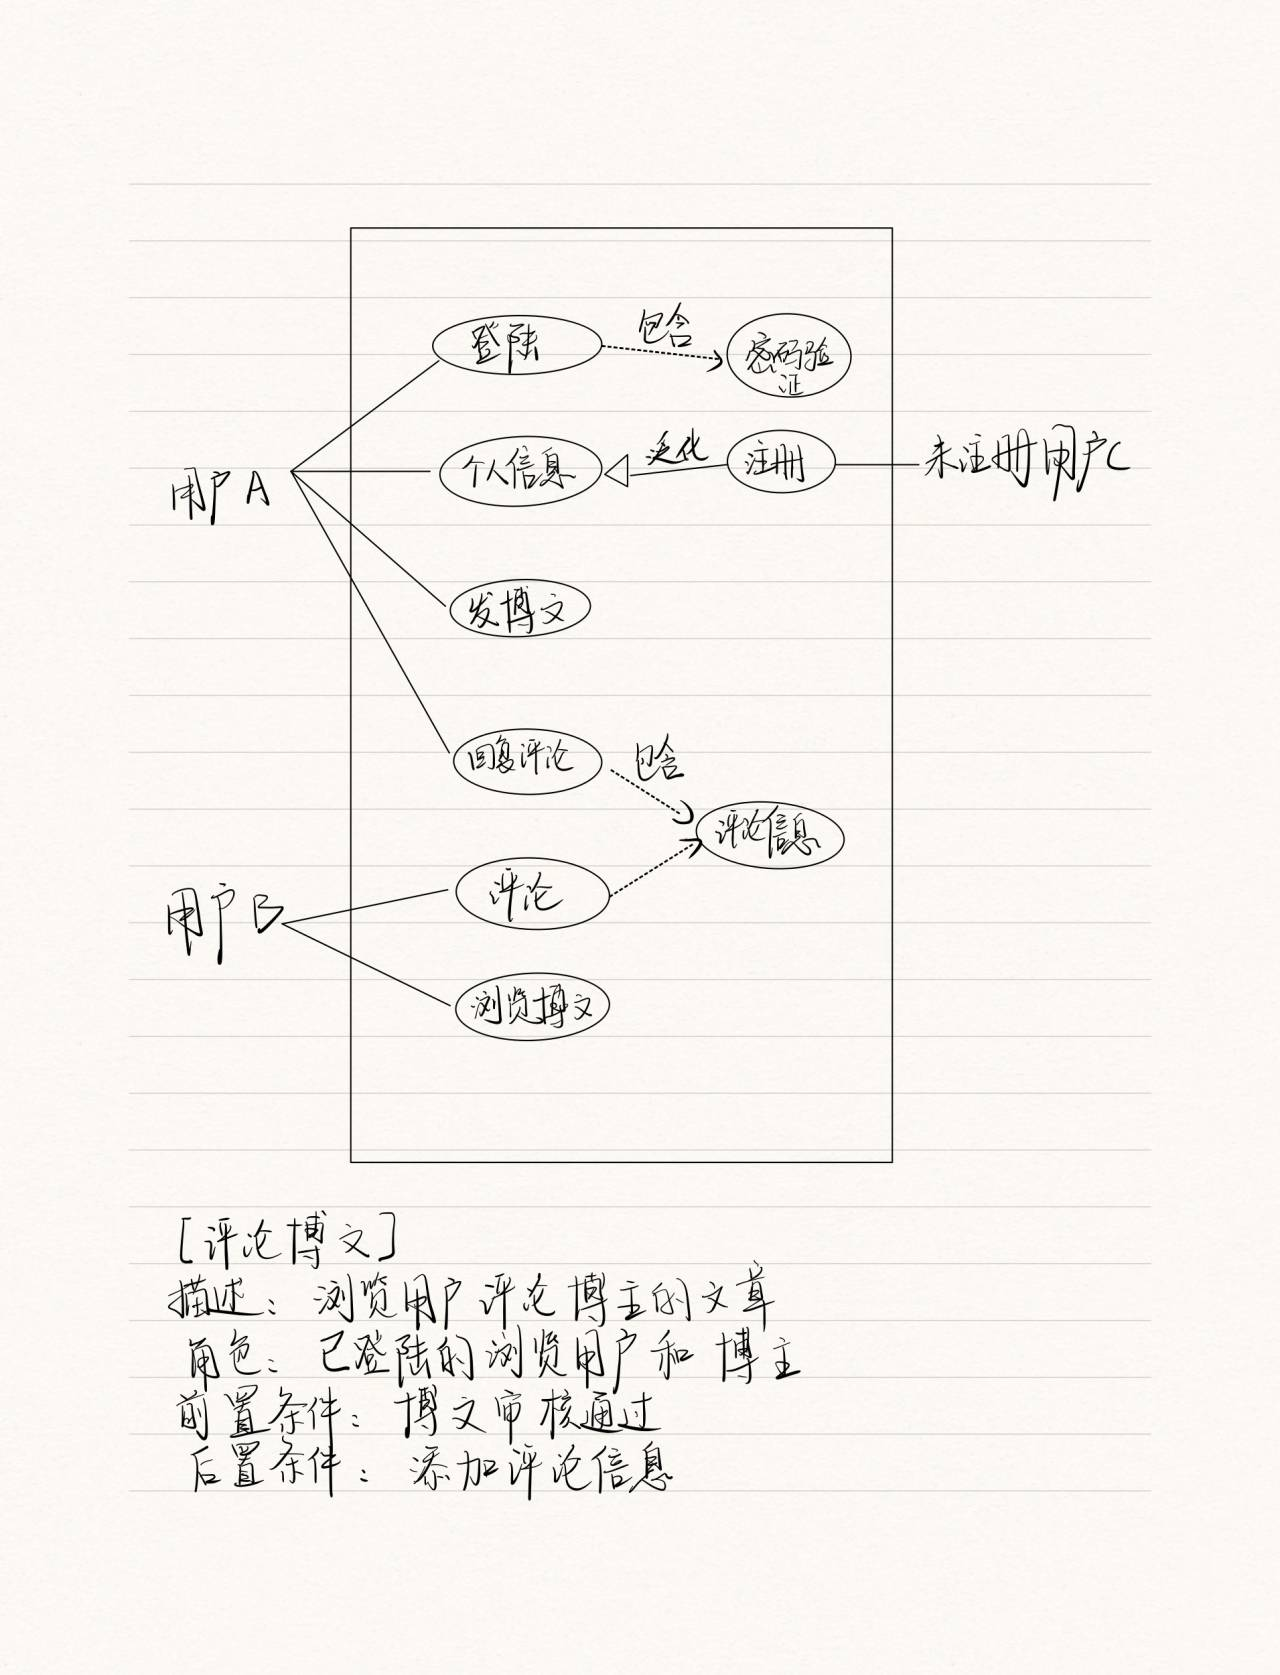 登陆
包含
密码验
证
用户A
个人信息
泛化
注册
未注册用户C
发博文
回复评论
包含
评论信息
用户B
评论
浏览博文
[评论博文]
描述：浏览用户评论博主的文章
角色：已登陆的浏览用户和博主
前置条件：博文审核通过
后置条件：添加评论信息